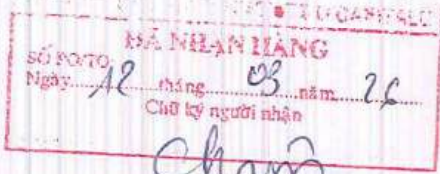 ĐÃ NHẬN HÀNG
SỐ PO/TO
Ngày 12 tháng 03 năm 26
Chữ ký người nhận